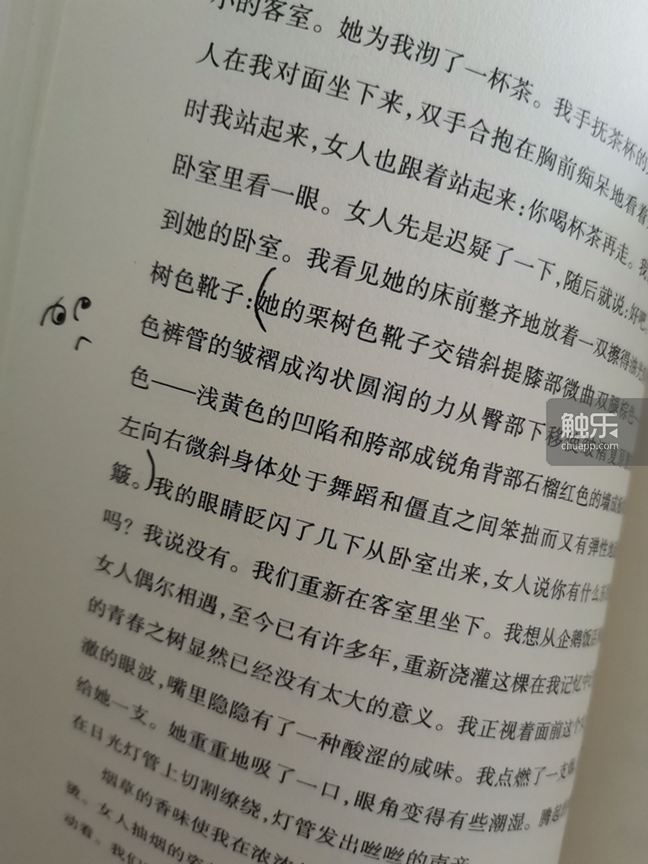 尔的客室。她为我沏了一杯茶。我手抚茶杯的
人在我对面坐下来，双手合抱在胸前痴呆地看着
时我站起来，女人也跟着站起来：你喝杯茶再走。我
卧室里看一眼。女人先是迟疑了一下，随后就说：好吧
到她的卧室。我看见她的床前整齐地放着一双擦得油光
树色靴子：(她的栗树色靴子交错斜提膝部微曲双腿棕色
色裤管的皱褶成沟状圆润的力从臀部下移
色——浅黄色的凹陷和胯部成锐角背部石榴红色的墙成
左向右微斜身体处于舞蹈和僵直之间笨拙而又有弹性地
簸。)我的眼睛眨闪了几下从卧室出来，女人说你有什么
吗？我说没有。我们重新在客室里坐下。我想从企鹅饭店
女人偶尔相遇，至今已有许多年，重新浇灌这棵在我记忆中
的青春之树显然已经没有太大的意义。我正视着面前这个
澈的眼波，嘴里隐隐有了一种酸涩的咸味。我点燃了一支
给她一支。她重重地吸了一口，眼角变得有些潮湿。腾起
在日光灯管上切割缭绕，灯管发出咝咝的声音
烟草的香味使我在浓浓
女人抽烟的姿
动着。我们
触乐
chuapp.com